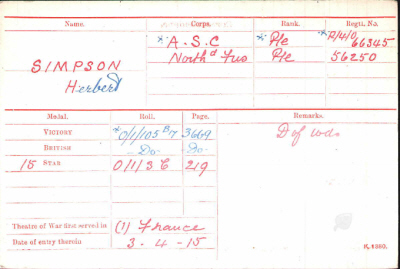 Name. Corps. Rank. Regtl. No.
SIMPSON
Herbert
* A.S.C * Pte * R/4/066345
North'd Fus Pte 56250
Medal. Roll. Page. Remarks.
VICTORY *O/1/105 B7 3669 D of wds
BRITISH Do Do
15 STAR O/1/3 C 219
Theatre of War first served in (1) France
Date of entry therein 3.4-15
K. 1380.